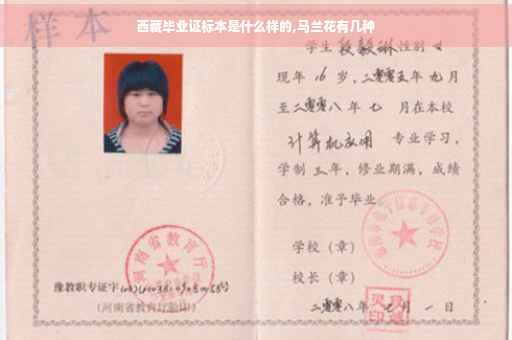 西藏毕业证标本是什么样的,马兰花有几种
样本
学生段毅琳性别女
现年16岁，二零零五年九月
至二零零八年七月在本校
计算机应用 专业学习，
学制三年，修业期满，成绩
合格，准予毕业。
学校（章）
校长（章）
二零零八年七月一日
河南省教育厅
豫教职专证字
(河南省教育厅验印)